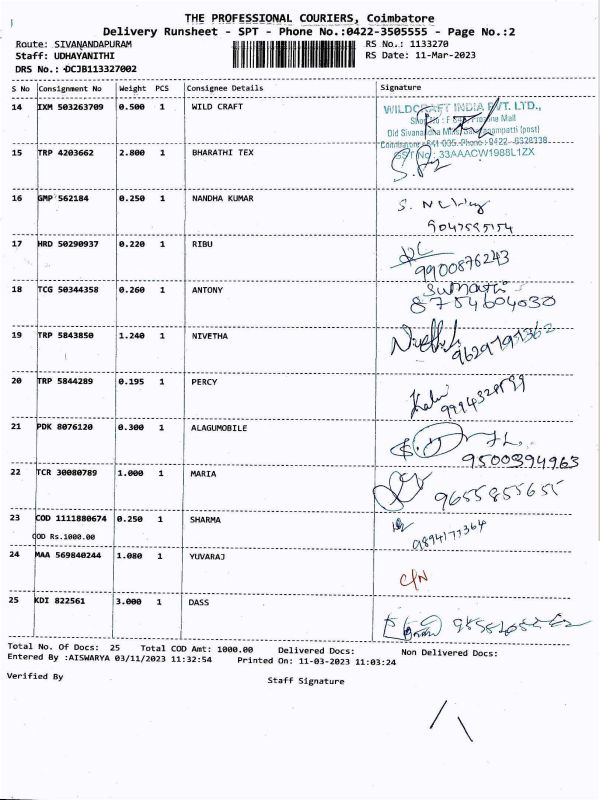 THE PROFESSIONAL COURIERS, Coimbatore
Delivery Runsheet - SPT - Phone No.:0422-3505555 - Page No.:2
Route: SIVANANDAPURAM RS No.: 1133270
Staff: UDHAYANITHI RS Date: 11-Mar-2023
DRS No.: DCJB113327002
S No Consignment No Weight PCS Consignee Details Signature
14 IXM 503263709 0.500 1 WILD CRAFT
WILDCRAFT INDIA PVT. LTD.,
Mall
Old Sivanandha (post)
Coimbatore - 641 035. Phone : 0422 - 6328338
GST No : 33AAACW1988L1ZX
15 TRP 4203662 2.800 1 BHARATHI TEX
16 GMP 562184 0.250 1 NANDHA KUMAR
17 HRD 50290937 0.220 1 RIBU
9900876243
18 TCG 50344358 0.260 1 ANTONY
Sumathi
8754604030
19 TRP 5843850 1.240 1 NIVETHA
20 TRP 5844289 0.195 1 PERCY
21 PDK 8076120 0.300 1 ALAGUMOBILE
9500394963
22 TCR 30080789 1.000 1 MARIA
9655855655
23 COD 1111880674 0.250 1 SHARMA
COD Rs.1000.00
9894177364
24 MAA 569840244 1.080 1 YUVARAJ
C/N
25 KDI 822561 3.000 1 DASS
Total No. Of Docs: 25 Total COD Amt: 1000.00 Delivered Docs: Non Delivered Docs:
Entered By :AISWARYA 03/11/2023 11:32:54 Printed On: 11-03-2023 11:03:24
Verified By Staff Signature